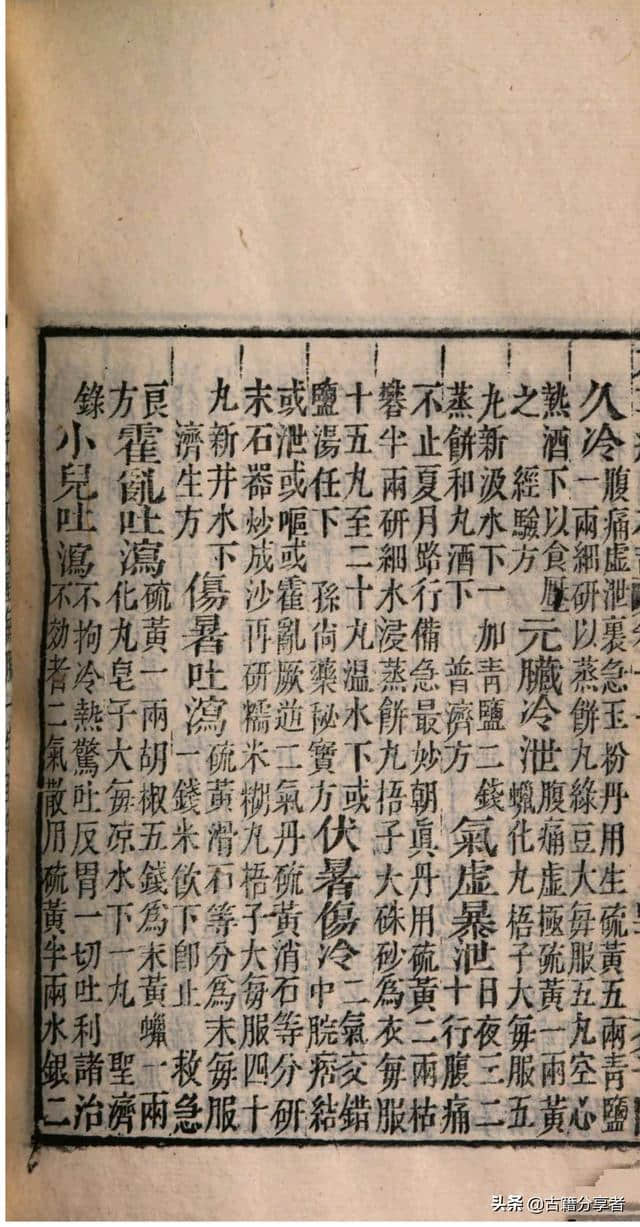 久冷
腹痛虛泄裏急玉粉丹用生硫黄五兩青鹽
一兩細研以蒸餅丸綠豆大每服五丸空心
熱酒下以食壓
之 經驗方
元臟冷泄
腹痛虛極硫黄一兩黄
蠟化丸梧子大每服五
丸新汲水下一加青鹽二錢
蒸餅和丸酒下 普濟方
氣虛暴泄
日夜三二
十行腹痛
不止夏月路行備急最妙朝眞丹用硫黄二兩枯
礬半兩研細水浸蒸餅丸梧子大硃砂為衣每服
十五丸至二十丸温水下或
鹽湯任下 孫尚藥秘寳方
伏暑傷冷
二氣交錯
中脘痞結
或泄或嘔或霍亂厥逆二氣丹硫黄消石等分研
末石器炒成沙再研糯米糊丸梧子大每服四十
丸新井水下
濟生方
傷暑吐瀉
硫黄滑石等分為末每服
一錢米飲下卽止 救急
良
方
霍亂吐瀉
硫黄一兩胡椒五錢為末黄蠟一兩
化丸皂子大每凉水下一丸 聖濟
錄
小兒吐瀉
不拘冷熱驚吐反胃一切吐利諸治
不効者二氣散用硫黄半兩水銀二
头条 @古籍分享者